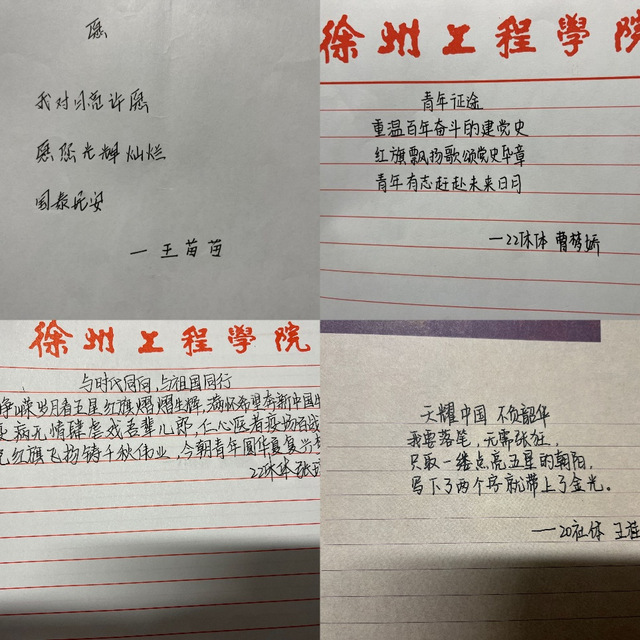 愿
我对月亮许愿
愿您光辉灿烂
国泰民安
一王苗苗
徐州工程學院
青年征途
重温百年奋斗的建党史
红旗飘扬歌颂党史华章
青年有志赶赴未来日月
一22休体 曹梦娇
徐州工程學院
与时代同向,与祖国同行
峥嵘岁月看五星红旗熠熠生辉,满怀希望奔新中国
病无情肆虐我吾辈儿郎,仁心医者疫场百战
红旗飞扬铸千秋伟业,今朝青年圆华夏复兴
22休体 张
天耀中国 不负韶华
我要落笔,无需张狂,
只取一缕点亮五星的朝阳,
写下了两个字就带上了金光。
一20社体 王